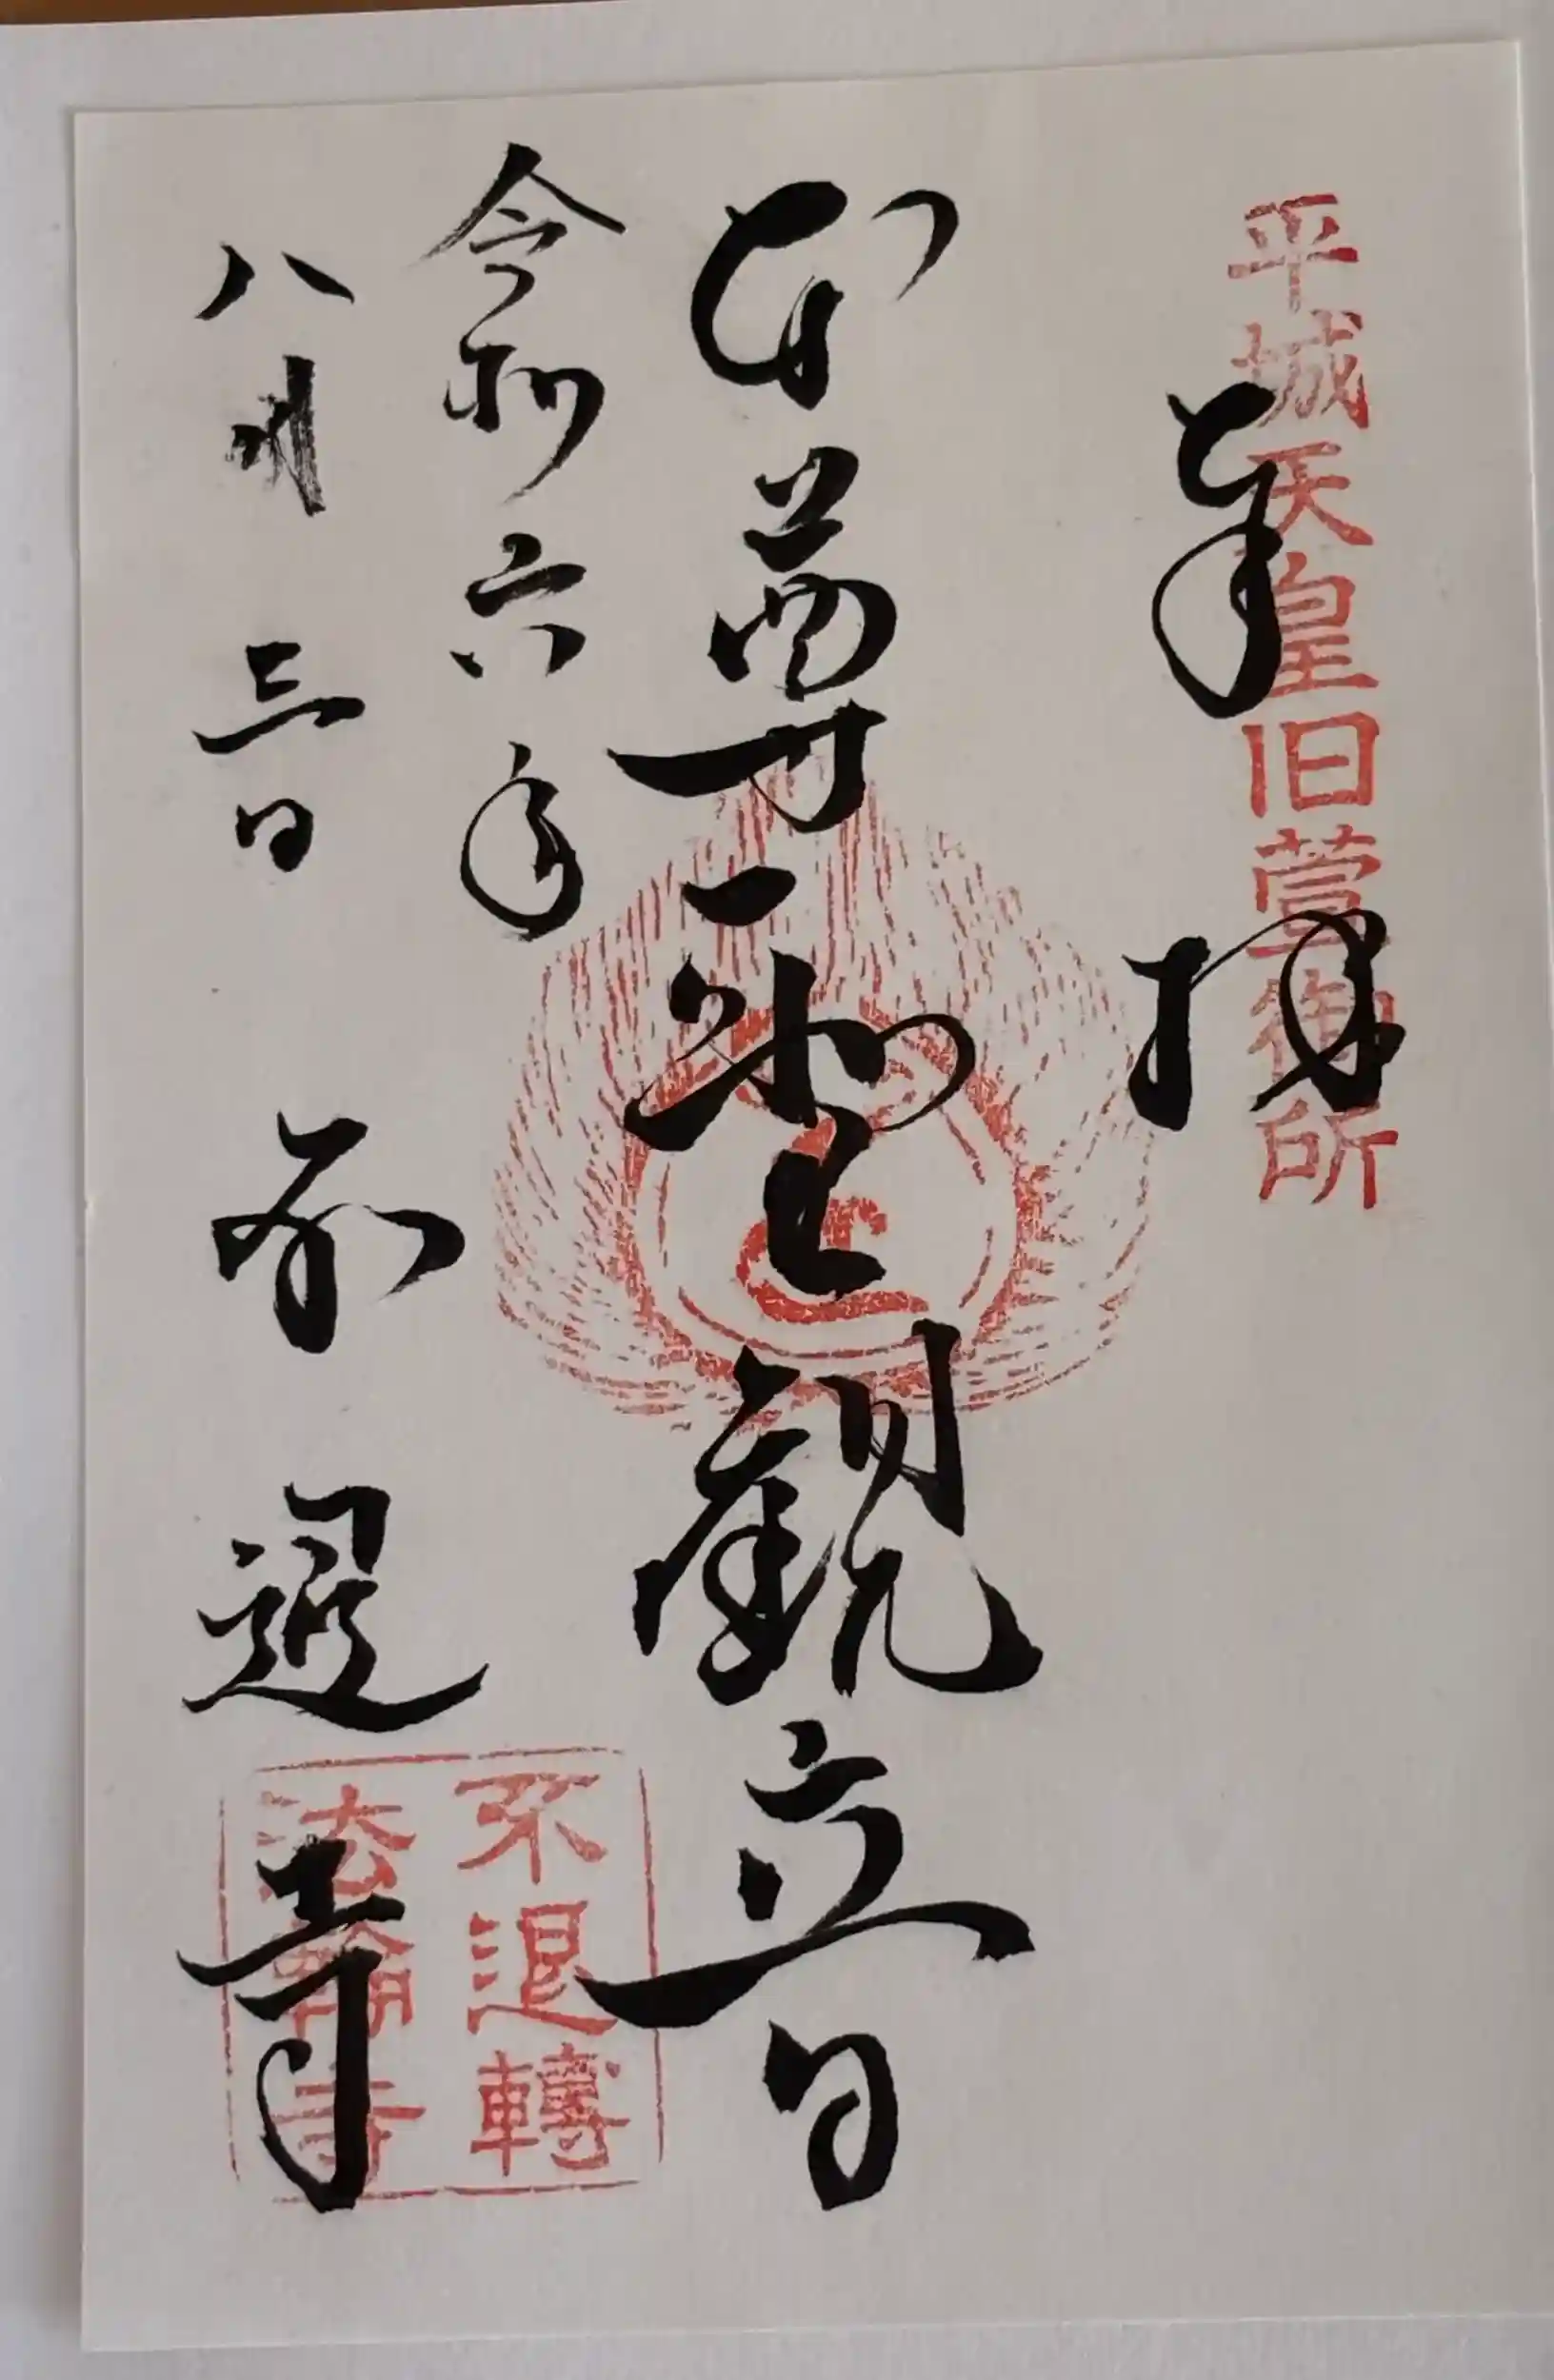 平城天皇旧萱御所
奉拝
本尊聖観立日
令和六年
八月三日
不退寺
不退轉
法輪寺